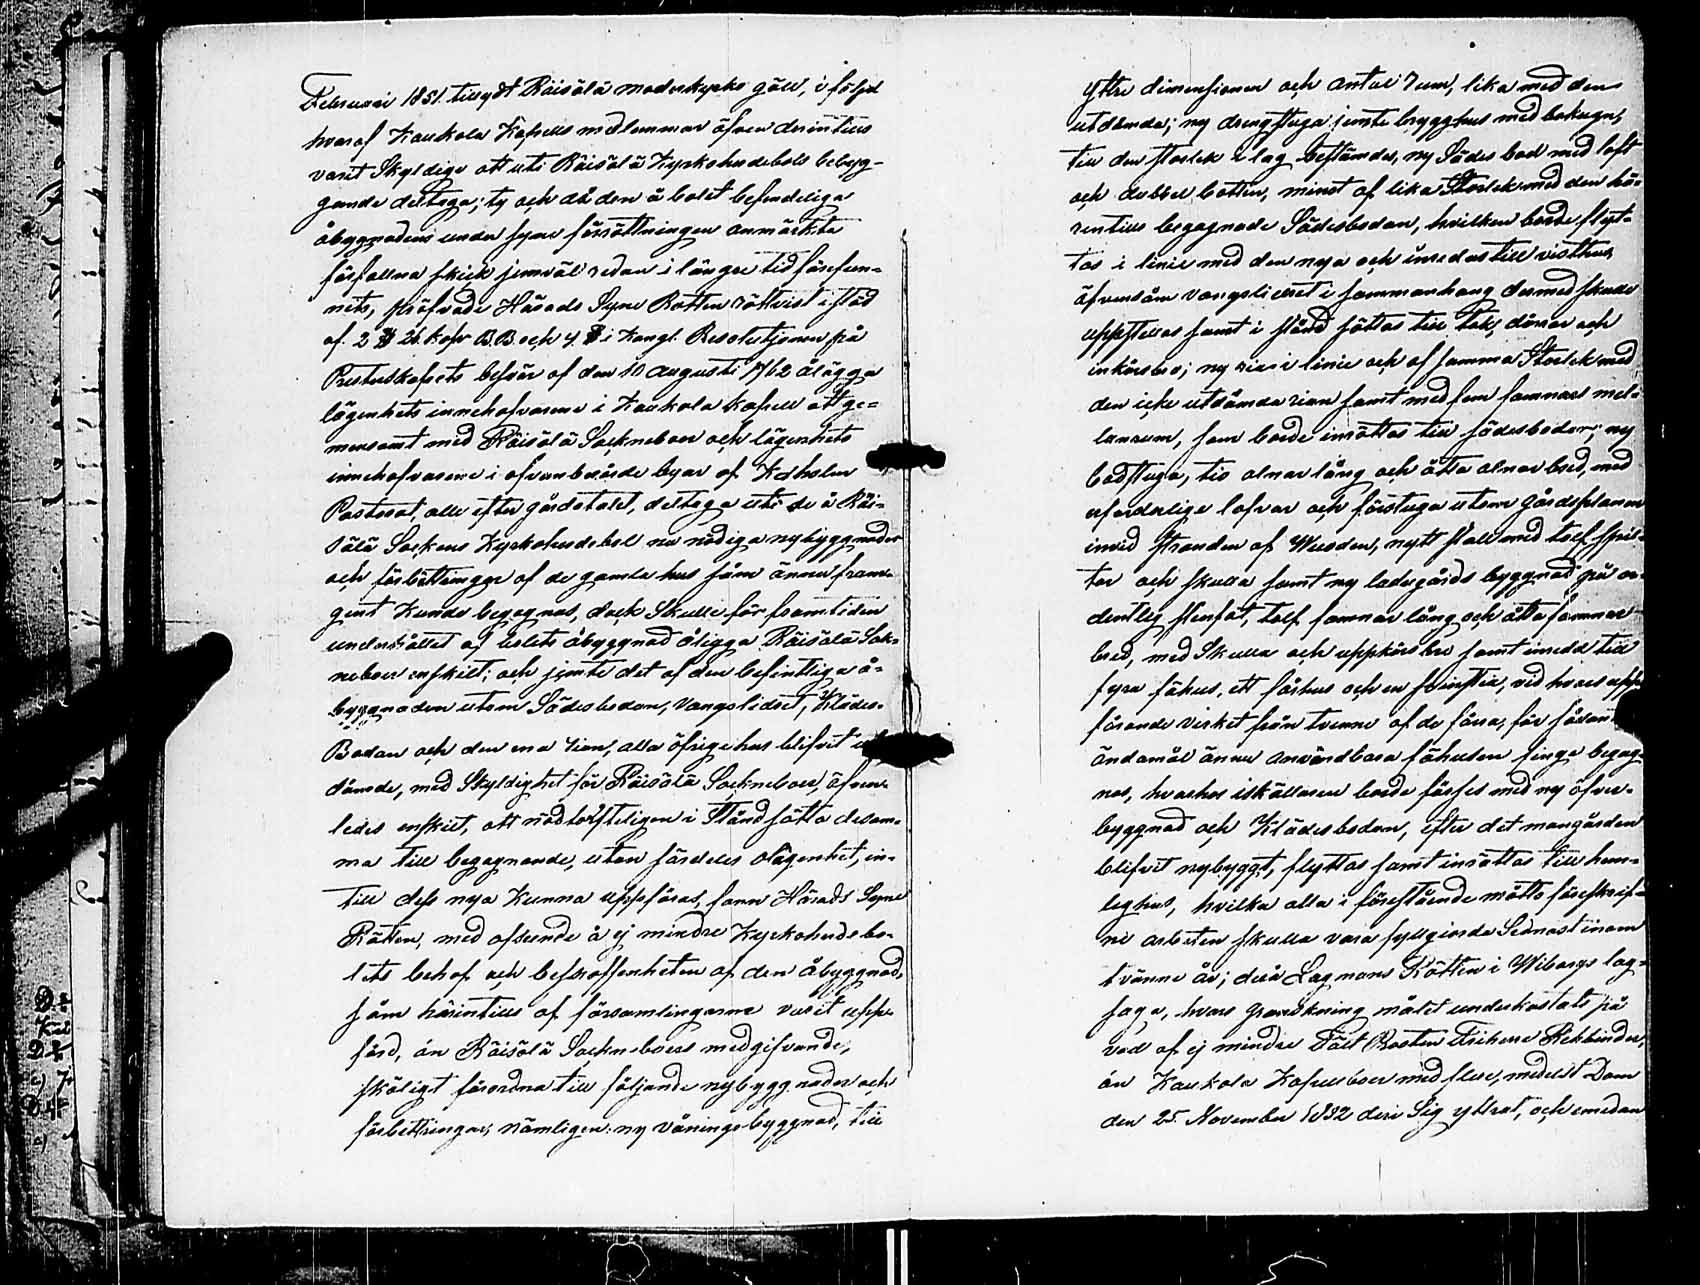 Februari 1851. tillydt Räisälä moderkyrko gäll, i följd
hvaraf Kaukola Kapells medlemmar äfven derintills
varit Skyldige att uti Räisälä Kyrkoherdebols bebyg-
gande deltaga; ty och då den å bolet befindeliga
åbyggnadens under syne förrättningen anmärkta
förfallna skick jemväl redan i längre tid förefun-
nits, pröfvade Härads Syne Rätten rättvist i stöd
af 2 § 26. kap. B.B. och 4. § i Kongl. Resolutionen på
Presterskapets besvär af den 10 Augusti 1762 ålägga
lägenhets innehafvarene i Kaukola Kapell att ge-
mensamt med Räisälä Sockneboer och lägenhets
innehafvarene i ofvanberörde byar af Kexholms
Pastorat, alla efter gårdetalet, deltaga uti de å Räi-
sälä Sockens Kyrkoherdebol nu nödiga nybyggnader
och förbättringar af de gamla hus som ännu fram-
gent Kunde begagnas, dock Skulle för framtiden
underhållet af bolets åbyggnad åligga Räisälä Sok-
neboer enskilt; och jemte det af den befintliga å-
byggnaden utom Sädesbodan, Vangslidret, Klädes-
Bodan och den ena rian, alla öfrige hus blifvit ut-
dömde, med Skyldighet för Räisälä Sockneboer, äfven-
ledes enskilt, att nödtorfteligen i Stånd sätta desam-
ma till begagnande, utan särdeles olägenhet, in-
till dess nya Kunna uppföras, fann Härads Syne
Rätten, med afseende å ej mindre Kyrkoherdebo-
lets behof och beskaffenheten af den åbyggnad,
som härintills af församlingarne varit upp-
förd, än Räisälä Sockneboers medgifvande,
skäligt förordna till följande nybyggnader och
förbättringar, nämligen: ny våningsbyggnad, till
yttre dimensionen och antal rum, lika med den
utdömda; ny drengstuga jemte brygghus med bakugn,
till den storlek i lag bestämdes, ny Sädes bod med loft
och dubbel botten, minst af lika Storlek med den hä-
rintills begagnade Sädesbodan, hvilken borde flyt-
tas i linie med den nya och inredas till visthus
äfvensom vangslidret i sammanhang dermed skulle
uppställas samt i stånd sättas till tak, dörrar och
inkörsbro; ny ria i linie och af samma Storlek med
den icke utdömda rian samt med fem famnars mel-
lanrum, som borde inrättas till sädesbodar; ny
badstuga, tio alnar lång och åtta alnar bred, med
erforderlige lafvar och förstuga utom gårdsplanen
invid stranden af Wuoxen, nytt stall med tolf spil-
tor och skulla samt ny ladugårds byggnad på or-
dentlig stenfot, tolf famnar lång och åtta famnar
bred, med Skulla och uppkörsbro samt inredd till
fyra fähus, ett fårhus och en svinstia, vid hvars upp-
förande virket från tvenne af de förra, för sådant
ändamål ännu användbara fähusen finge begag-
nas, hvarhos iskällaren borde förses med ny öfver-
byggnad och Klädesbodan, efter det mangården
blifvit nybyggt, flyttas samt inrättas till hem-
lighus, hvilka alla i förestående måtto föreskrif-
ne arbeten skulla vara fyllgjorda Sednast inom
tvänne år; derå Lagmans Rätten i Wiborgs lag-
saga, hvars granskning målet underkastats på
vad af ej mindre Fält Prosten Friherre Rehbinder,
än Kaukola Kapellboer med flere, medelst Dom
den 25. November 1852 deri Sig yttrat, och emedan